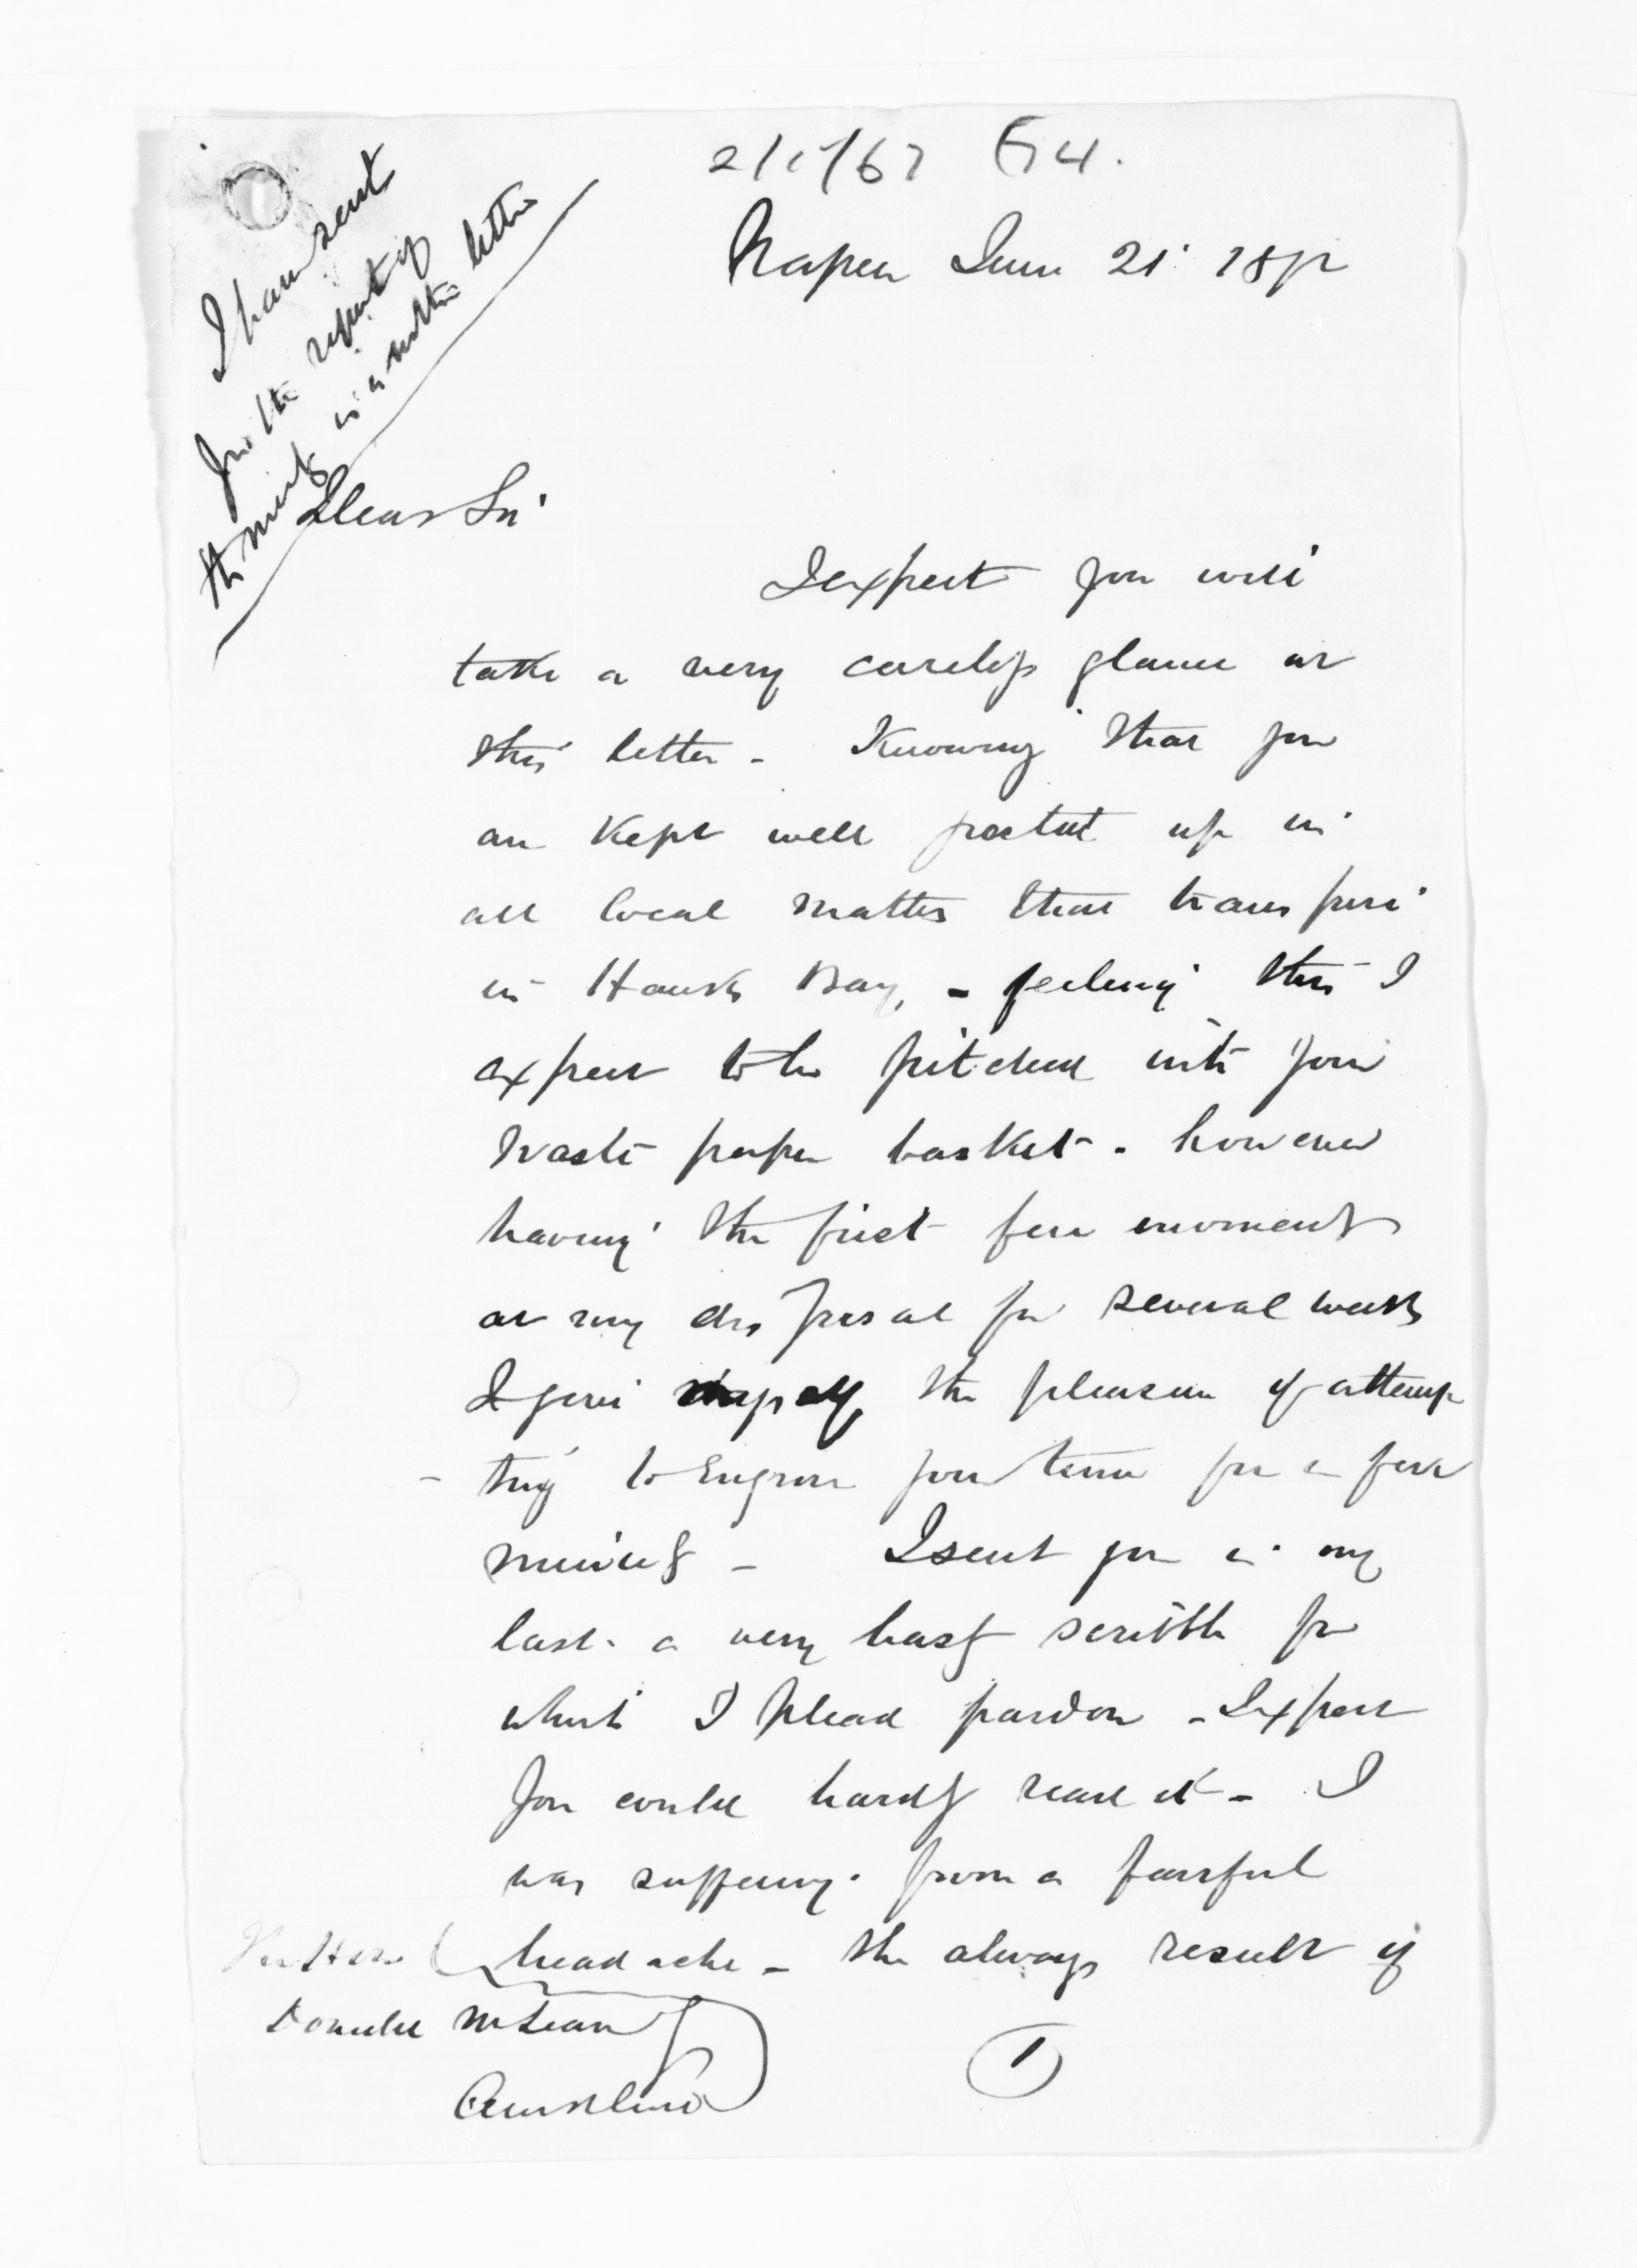 I have sent
you the report of
the meeting in another letter
Napier June 21st 187
Dear Sir
I expect you will
take a very careless glance at
this letter - Knowing that you
are kept well posted up in
all local matters that transpire
in Hawkes Bay, - feeling this I
expect to be pitched into your
waste paper basket - however
having the first few moments
at my disposal for several weeks
I give myself the pleasure of attemp
- ting to engross your time for a few
minutes - I sent you in my
last a very hasty scribble for
which I plead pardon - I expect
you could hardly read it - I
was suffering from a fearful
headache - the always result of
The Hon
Donald McLean
Auckland
1